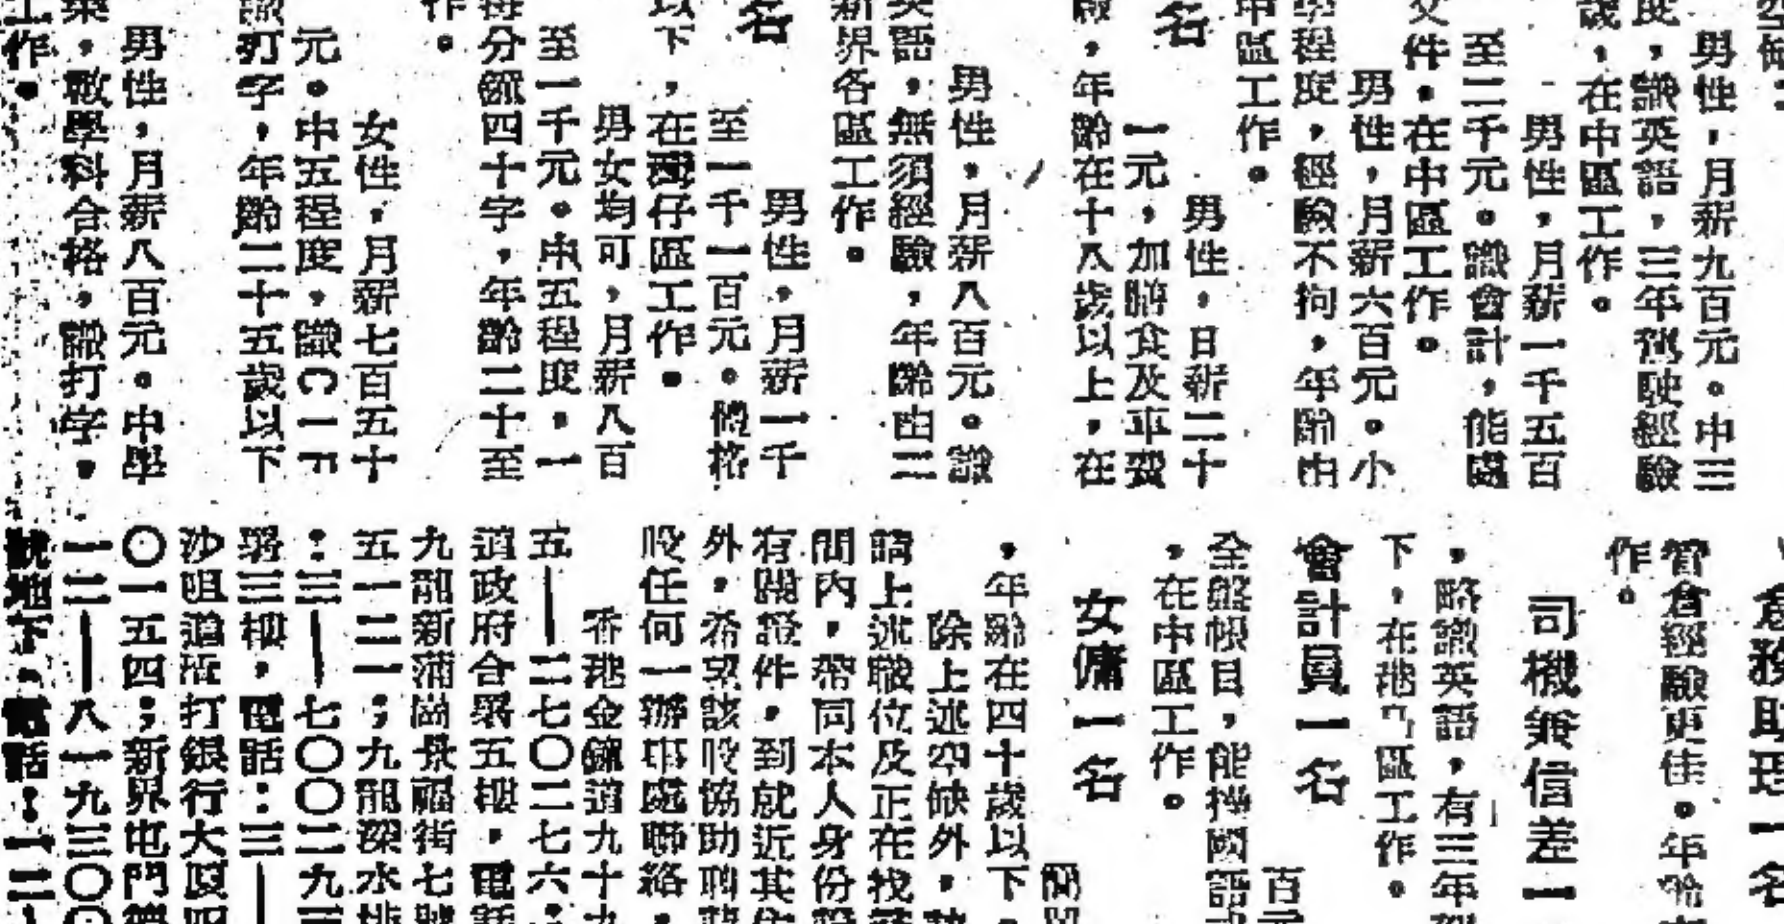 男性，月薪九百元。中三
度，識英語，三年駕駛經驗
歲，在中區工作。
男性，月薪一千五百
至二千元。識會計，能處
文件。在中區工作。
男性，月薪六百元。小
學程度，經驗不拘，年齡由
中區工作。
名
男性，日薪二十
一元，加膳食及車費
，年齡在十八歲以上，在
男性，月薪八百元。識
英語，無須經驗，年齡由二
新界各區工作。
名
男性，月薪一千
至一千一百元。體格
以下，在灣仔區工作。
男女均可，月薪八百
至一千元。中五程度，一
每分鐘四十字，年齡二十至
作。
女性，月薪七百五十
元。中五程度，識
識打字，年齡二十五歲以下
男性，月薪八百元。中學
，數學科合格，識打字。
工作。
倉務助理一名
管倉經驗更佳。年齡
作。
司機兼信差一
，略識英語，有三年
下，在港 區工作。
會計員一名
百元
全盤帳目，能操國語
，在中區工作。
女傭一名
，年齡在四十歲以下。
除上述空缺外，
請上述職位及正在找
間內，帶同本人身份
有關證件，到就近其
外，希望該股協助聘
股任何一辦事處聯絡，
香港金鐘道九十
五—二七〇二七六；
道政府合署五樓，電話
九龍新蒲崗景福街七號
五一二一；九龍深水埗
：三—七〇〇二九
署三樓，電話：三—
沙咀道渣打銀行大廈四
〇一五四；新界屯門
一二—八一九三〇
號地下，電話：一二—